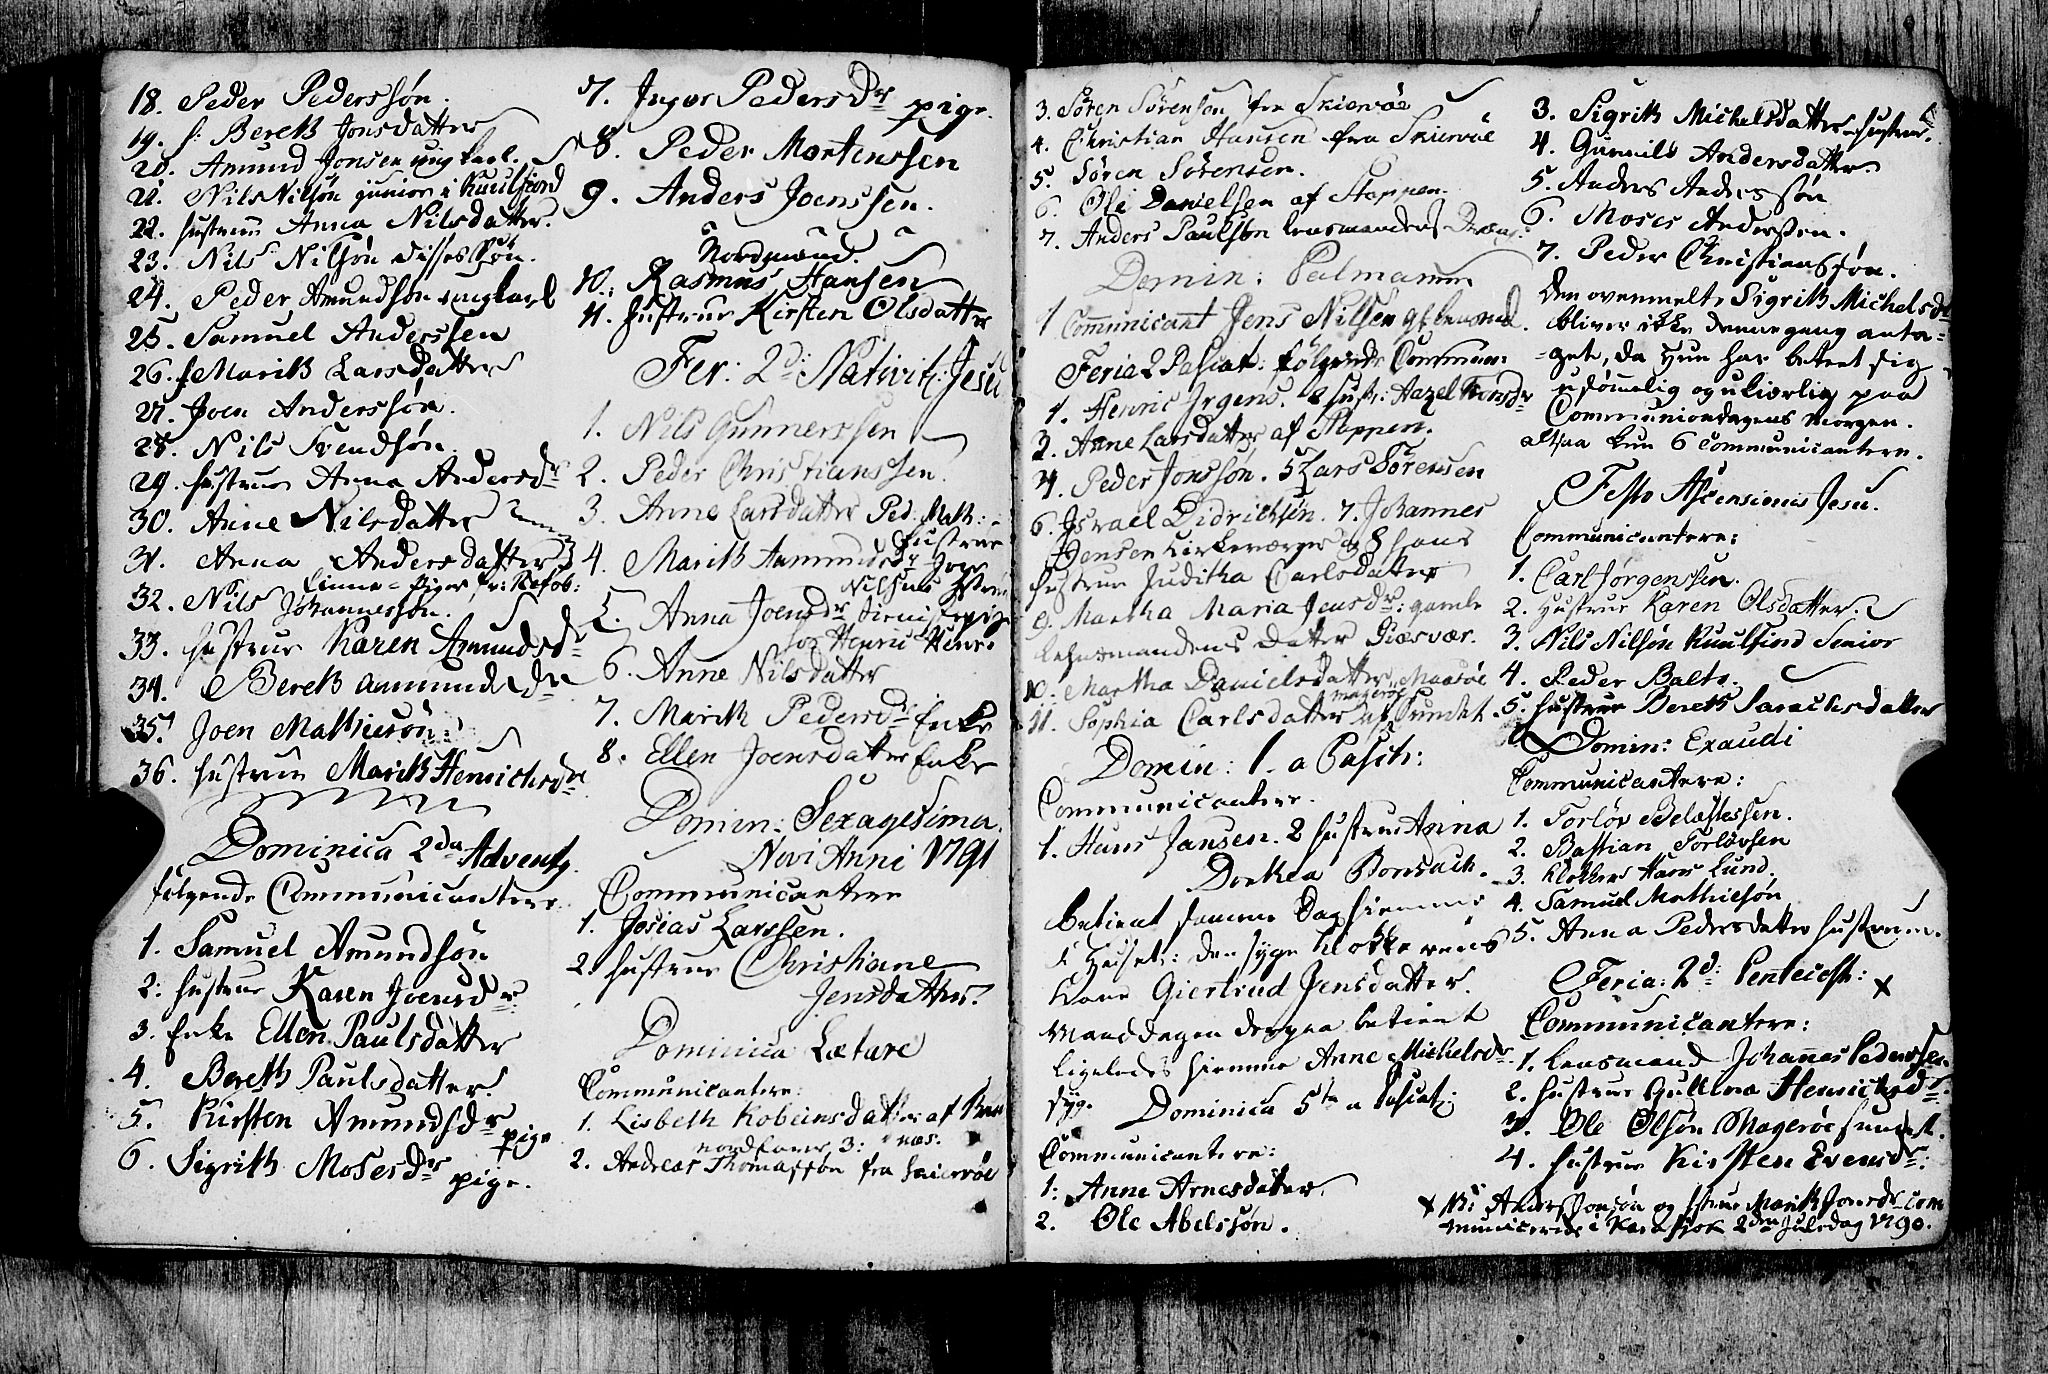 18. Peder Pederssøn.
19. h: Bereth Jonsdatter
20. Amund Jonsen ungkarl.
21. Nils Nilsøn junior i Kuulfiord
22. hustruu Anna Nilsdatter.
23. Nils Nilsøn Disses Søn.
24. Peder Amundsøn ungkarl
25. Samuel Anderssen
26. h Marith Larsdatter
27. Joen Anderssøn.
28. Nils Svendsøn.
29. hustrue Anna Andersdr
30. Anne Nilsdatter
31. Anna Andersdatter
32. Nils Johannessøn.
33. hustrue Karen Amundsdr
34. Bereth Ammundsdr
35. Joen Mathiesøn
36. hustrue Marith Henrichsdr
Dominica 2da Advent
følgende Communicantere
1. Samuel Amundsøn
2. hustrue Karen Joensdr
3. Enke Ellen Paulsdatter
4. Bereth Paulsdatter.
5. Kirsten Amundsdr pige
6. Sigrith Mosesdr pige.
7. Inger Pedersdr pige.
8. Peder Mortenssen
9. Anders Joenssen.
Nordmænd.
10. Rasmus Hansen
11. hustrue Kirsten Olsdatter
Fer: 2d: Nativit: Jesu
1. Nils Gunnerssen
2. Peder Christianssen.
3. Anne Larsdatter Ped: Math:
hustrue
4. Marith Ammundsdr
5. Anna Joensdr tienistepige
hos Henric Henr.
6. Anne Nilsdatter
7. Marith Pedersdr Enke
8. Ellen Joensdatter Enke
Domin: Sexagesima
Novi Anni 1791
Communicantere
1. Josias Larssen.
2. hustrue Christiane
Jensdatter.
Dominica Lætare
Communicantere:
1. Lisbeth Robeinsdatter af
nordfarer 3:
2. Andreas Thomassøn fra Skiervöe
3. Sören Sörensen fra Skiervöe
4. Christian Hansen fra Skiervöe
5. Sören Sörensen.
6. Ole Danielsen af Stappen.
7. Anders Paulsen Lensmandens
Domin: Palmarum
1 Communicant Jens Nilsen
Feria 2 Pascat: følgende Commun:
1. Henric Jrgens. 2 hustr:
3. Anne Larsdatter af Stappen.
4. Peder Jonssøn. 5 Lars Sörensen
6. Israel Didrichsøn. 7. Johannes
Jensen Kirkeværge og 8 hans
hustrue Juditha Carlsdatter
9. Martha Maria Jensdr: gamle
Lehnsmandens Datter Giæsvær.
10. Martha Danielsdatter Maasöe
11. Sophia Carlsdatter af Magerøe Sundet.
Domin: 1. a Pasch:
Communicantere.
1. Hans Jansen. 2 hustrue Anna
Dorthea Bonsach.
betient samme Dag hiemme
i Huset: den syge Klokkerens
Kone Giertrud Jensdatter.
Manddagen derpaa betient
ligeledes hiemme Anne Michelsdr
syg.
Dominica 5ta a Pascat:
Communicantere:
1. Anne Arnesdatter.
2. Ole Abelssøn.
3. Sigrith Michelsdatter hustrue.
4. Gunnild Andersdatter.
5. Anders Anderssøn
6. Moses Andersen.
7. Peder Christianssøn.
Den ovenmelte Sigrith Michelsdr
bliver ikke denne gang anta-
-get, da Hun har beteet sig
usømmelig og ukierlig paa
Communiondagens Morgen.
altsaa kun 6 communicantere.
Festo Ascensionis Jesu.
Communicantere:
1. Carl Jørgenssen.
2. Hustrue Karen Olsdatter.
3. Nils Nilsøn Kuulfiord Senior
4. Peder Balto.
5. hustrue Bereth Sarachsdatter
Domin: Exaudi
Communicantere:
1. Torlöv
2. Bastian Torlövsen
3. Klokker Hans Lund.
4. Samuel Mathiesøn
5. Anna Pedersdatter hustrue.
Feria: 2d: Pentecost: x
Communicantere:
1. Lensmand Johannes Pederssen
2. hustrue Gullena Henrichsdr.
3. Ole Olsøn Magerøesundet.
4. hustrue Kirsten Evensdr:
x NB: Anders Jonsøn og hstrue Marith Joensdr com
municerede i Karasjok 2den Juledag 1790.